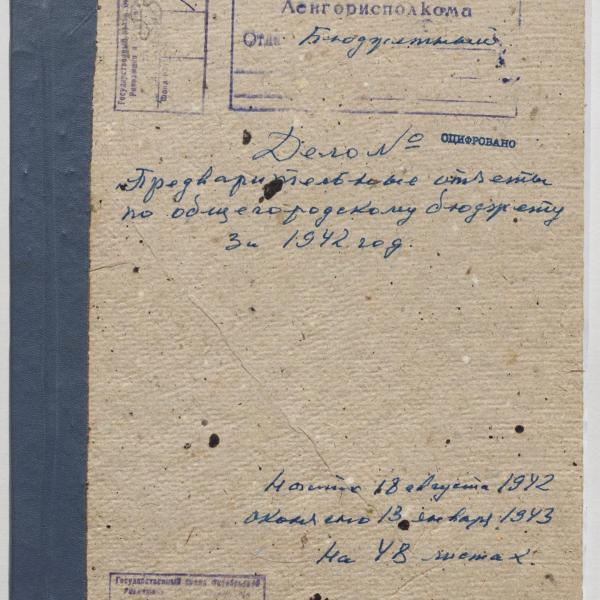 Ленгорисполкома
Отд. Бюджетный
Дело № ОЦИФРОВАНО
Предварительные отчеты
по общегородскому бюджету
за 1942 год.
Начато 18 августа 1942
окончено 13 января 1943
На 48 листах.
Государственный архив Октябрьской